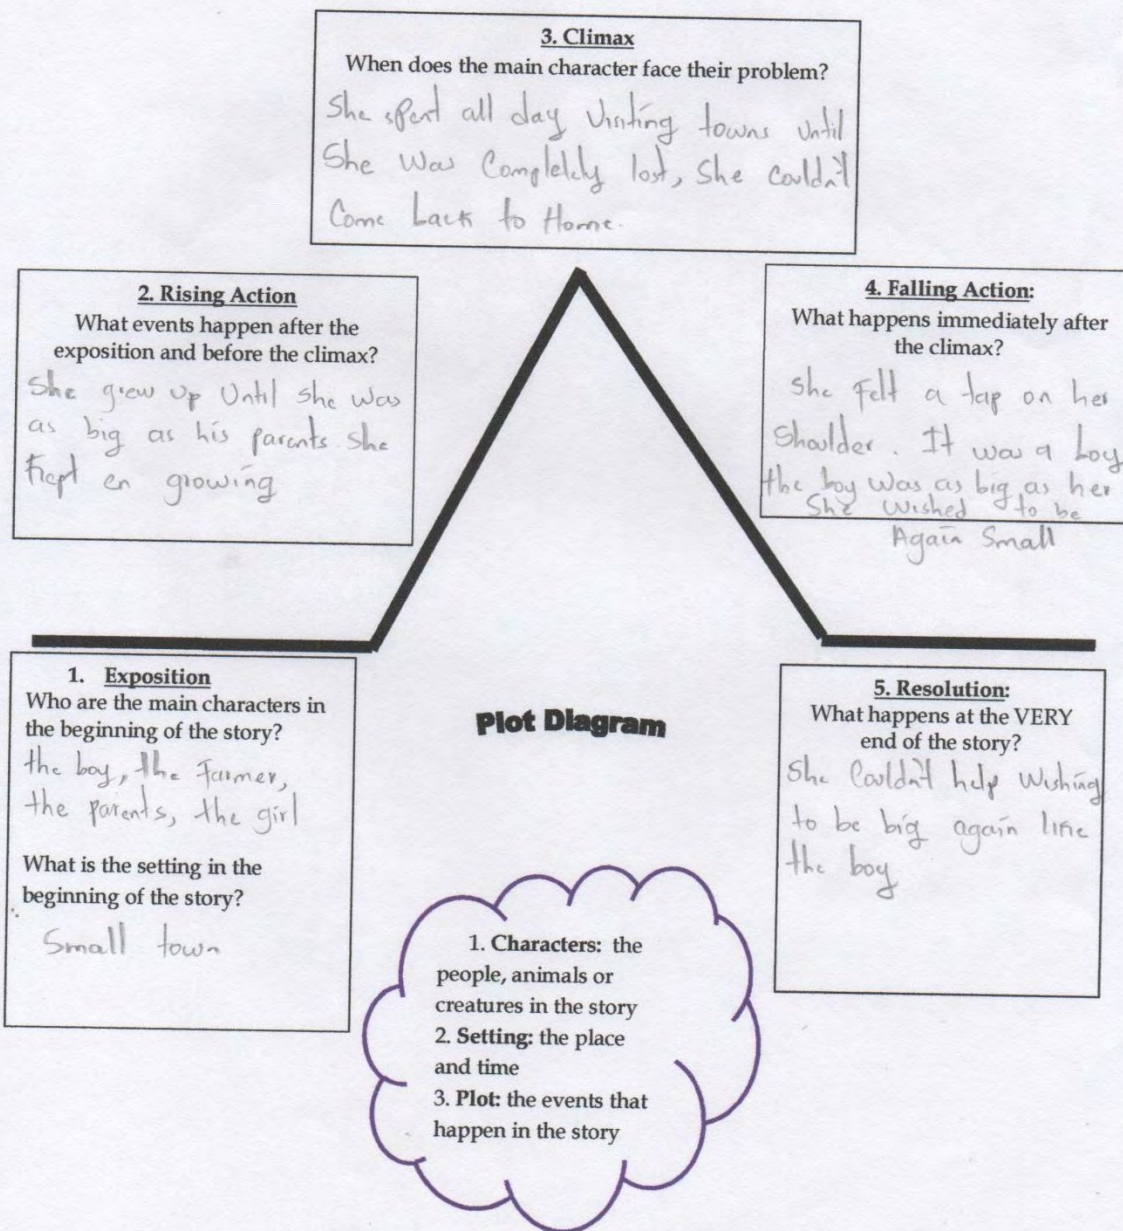 3. Climax
When does the main character face their problem?
She spent all day visiting towns until
She was Completely lost, She couldn't
Come back to Home.
2. Rising Action
What events happen after the
exposition and before the climax?
She grew up Until she was
as big as his parents she
kept en growing
4. Falling Action:
What happens immediately after
the climax?
she Felt a tap on her
Shoulder. It was a boy
the boy was as big as her
She wished to be
Again Small
1. Exposition
Who are the main characters in
the beginning of the story?
the boy, the Farmer,
the parents, the girl
What is the setting in the
beginning of the story?
Small town
Plot Diagram
5. Resolution:
What happens at the VERY
end of the story?
She Couldn't help Wishing
to be big again like
the boy
1. Characters: the
people, animals or
creatures in the story
2. Setting: the place
and time
3. Plot: the events that
happen in the story